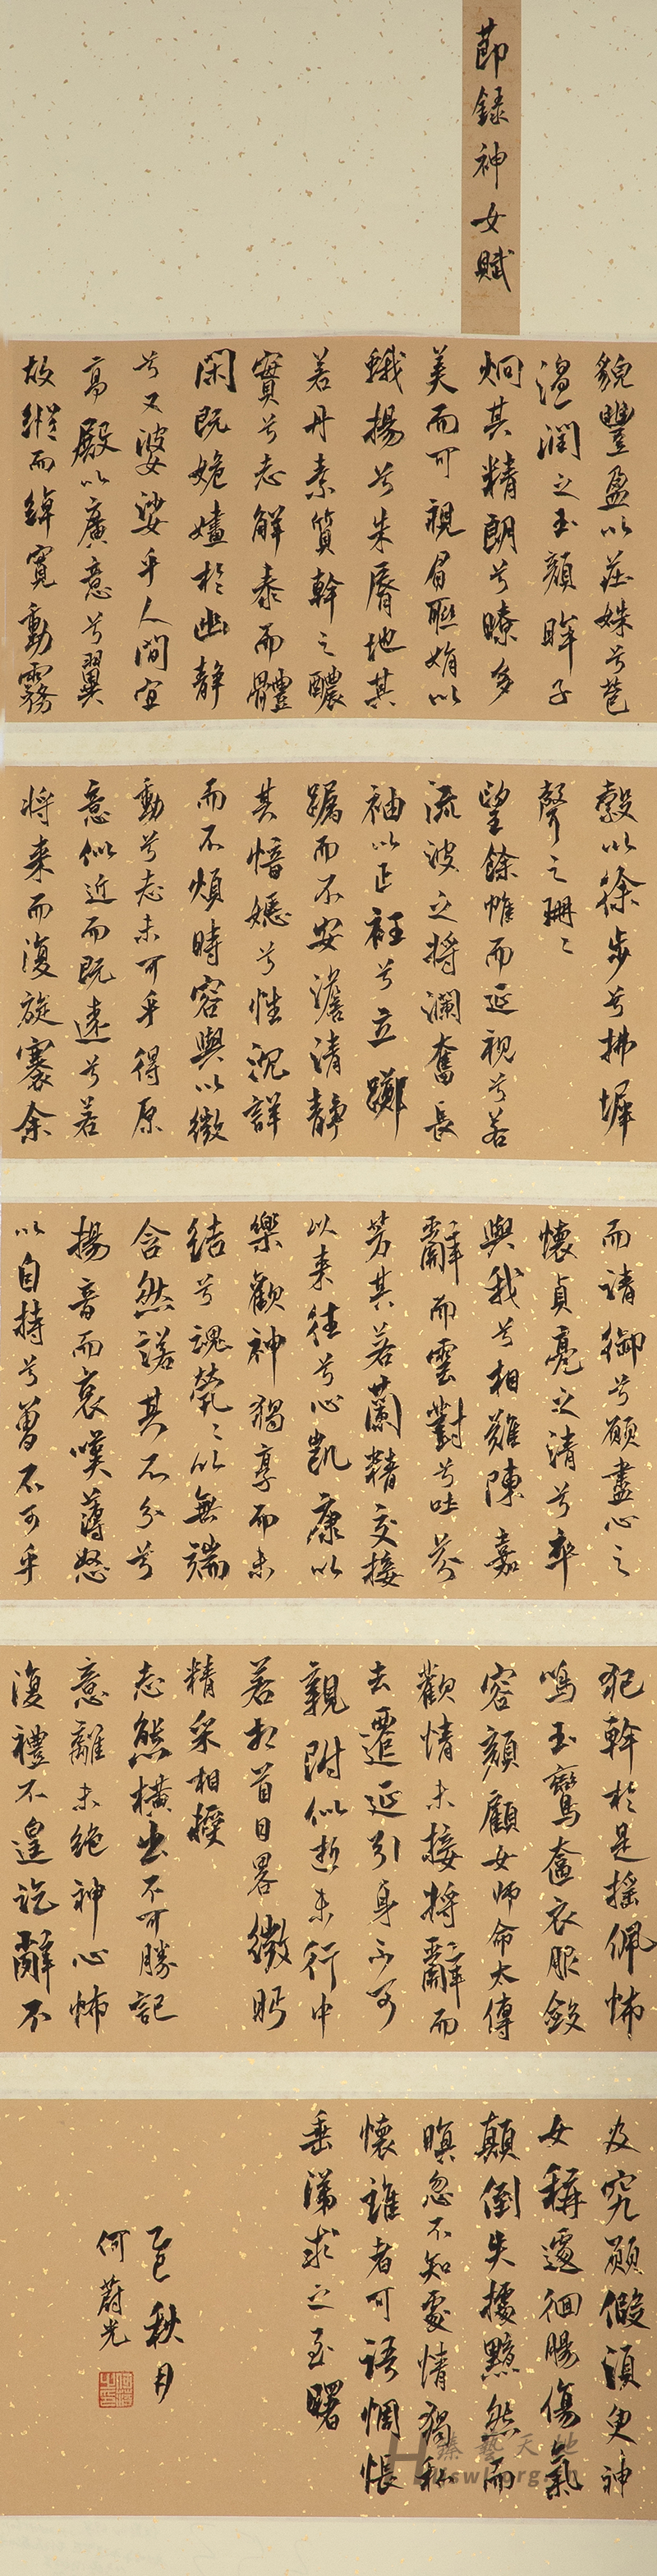 節錄神女賦
貌豐盈以莊姝兮苞
溫潤之玉顏眸子
炯其精朗兮瞭多
美而可視眉聯娟以
蛾揚兮朱脣的其
若丹素質幹之醲
實兮志解泰而體
閑既姽嫿於幽靜
兮又婆娑乎人間宜
高殿以廣意兮翼
故縱而綽寬動霧
縠以徐步兮拂墀
聲之珊〻
望餘帷而延視兮若
流波之將瀾奮長
袖以正衽兮立躑
躅而不安澹清靜
其愔嫕兮性沉詳
而不煩時容與以微
動兮志未可乎得原
意似近而既遠兮若
將來而復旋褰余
而請御兮願盡心之
懷貞亮之清兮卒
與我兮相難陳嘉
辭而雲對兮吐芬
芳其若蘭精交接
以來往兮心凱康以
樂歡神獨亨而未
結兮魂煢〻以無端
含然諾其不分兮
揚音而哀嘆薄怒
以自持兮曾不可乎
犯幹於是搖佩飾
鳴玉鸞奩衣服斂
容顏顧女師命太傅
歡情未接將辭而
去遷延引身不可
親附似逝未行中
若相首目略微眄
精采相授
志態橫出不可勝記
意離未絕神心怖
復禮不遑訖辭不
及究願假須臾神
女稱遽徊腸傷氣
顛倒失據黯然而
暝忽不知處情獨私
懷誰者可語惆悵
垂涕求之至曙
乙巳秋月
何蔚光
臻藝天地